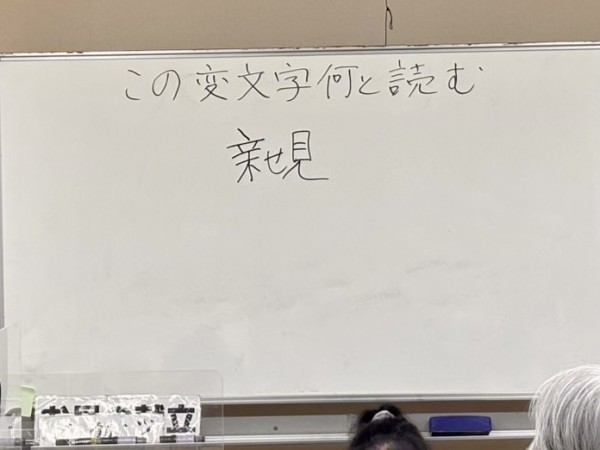 この変文字何と読む
亲せ見